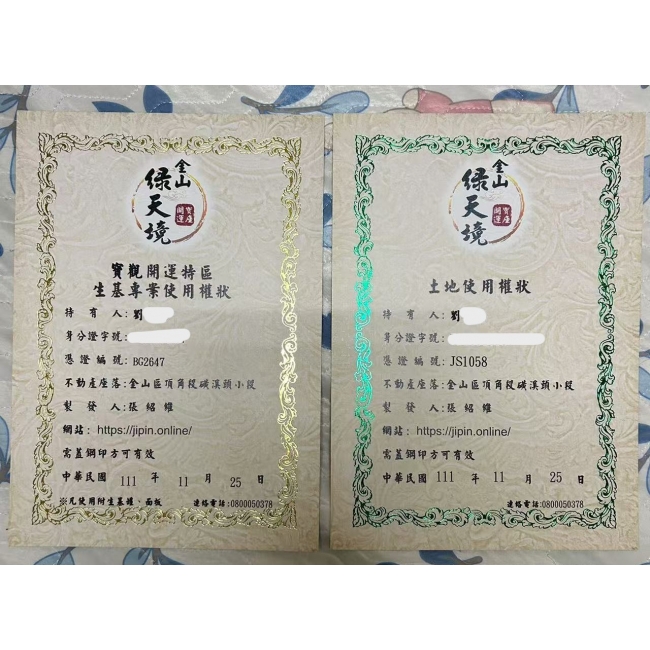 金山
綠天境
寶座
開運
寶觀開運特區
生基專業使用權狀
持有人:劉
身分證字號:
憑證編號:BG2647
不動產座落:金山區頂角段磺溪頭小段
製發人:張紹維
網站:https://jipin.online/
需蓋鋼印方可有效
中華民國 111 年 11 月 25 日
※凡使用附生基罐、面板 連絡電話:0800050378
金山
綠天境
寶座
開運
土地使用權狀
持有人:劉
身分證字號:
憑證編號:JS1058
不動產座落:金山區頂角段磺溪頭小段
製發人:張紹維
網站:https://jipin.online/
需蓋鋼印方可有效
中華民國 111 年 11 月 25 日
連絡電話:0800050378